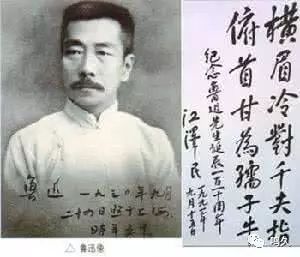 鲁迅 一九三〇年九月
二十四日照于上海
時年五十
△ 鲁迅像
橫眉冷對千夫指
俯首甘為孺子牛
纪念鲁迅先生诞辰一百一十周年
江澤民
一九九一年
九月十五日